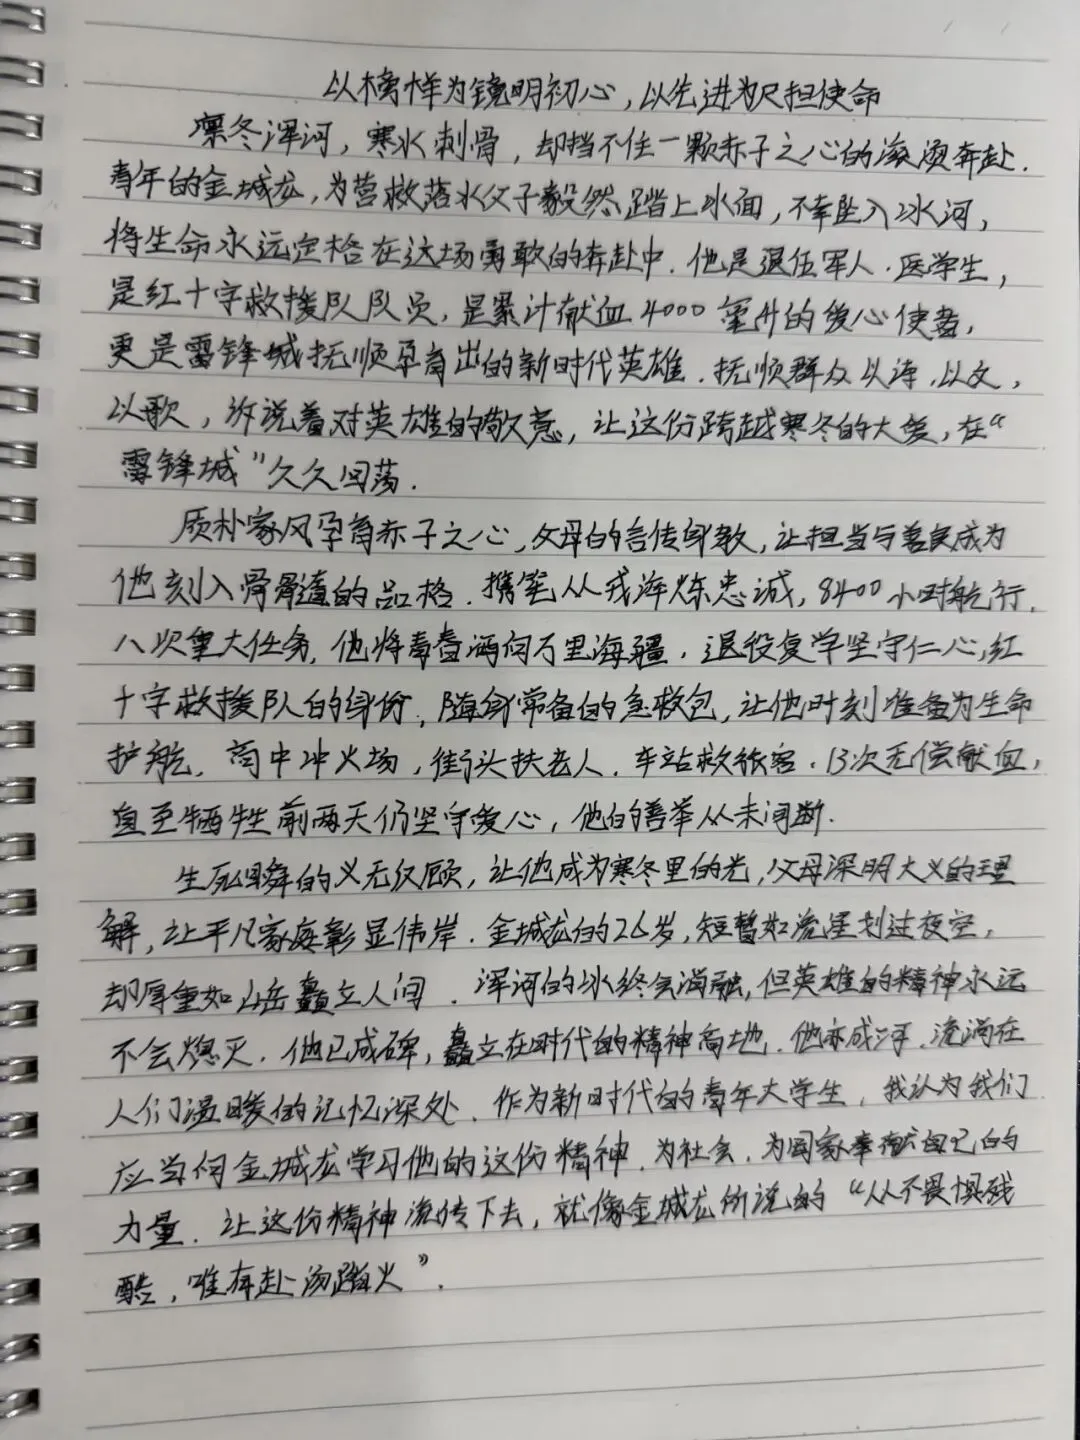 以榜样为镜明初心，以先进为尺担使命
凛冬浑河，寒水刺骨，却挡不住一颗赤子之心的滚烫奔赴.
青年的金城龙，为营救落水父子毅然踏上冰面，不幸坠入冰河，
将生命永远定格在这场勇敢的奔赴中. 他是退伍军人.医学生，
是红十字救援队队员，是累计献血4000毫升的爱心使者，
更是雷锋城抚顺孕育出的新时代英雄. 抚顺群众以诗.以文，
以歌，诉说着对英雄的敬意，让这份跨越寒冬的大爱，在“
雷锋城”久久回荡.
质朴家风孕育赤子之心，父母的言传身教，让担当与善良成为
他刻入骨髓的品格. 携笔从戎淬炼忠诚，8400小时航行，
八次重大任务，他将青春洒向万里海疆. 退役复学坚守仁心，红
十字救援队的身份，随身常备的急救包，让他时刻准备为生命
护航. 高中冲火场，街头扶老人. 车站救旅客. 13次无偿献血，
直至牺牲前两天仍坚守爱心，他的善举从未间断.
生死瞬的义无反顾，让他成为寒冬里的光，父母深明大义的理
解，让平凡家庭彰显伟岸. 金城龙的26岁，短暂如流星划过夜空，
却厚重如山岳矗立人间. 浑河的冰终会消融，但英雄的精神永远
不会熄灭. 他已成碑，矗立在时代的精神高地. 他亦成河. 流淌在
人们温暖的记忆深处. 作为新时代的青年大学生，我认为我们
应当向金城龙学习他的这份精神. 为社会. 为国家奉献自己的
力量. 让这份精神流传下去，就像金城龙所说的“从不畏惧残
酷，唯有赴汤蹈火”.